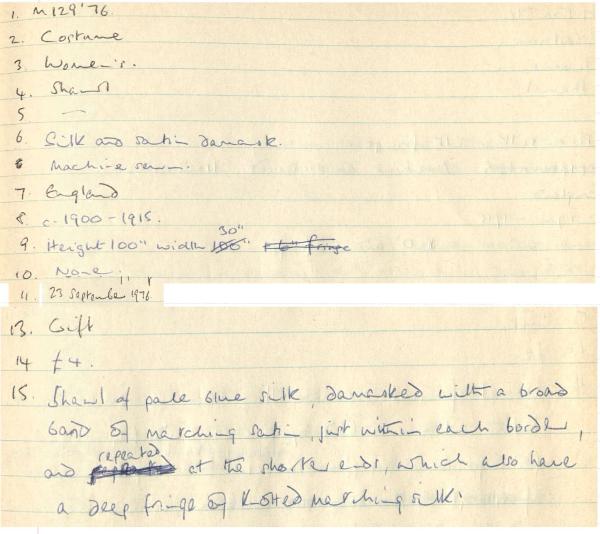 1. M129'76
2. Costume
3 Women's.
4. Shawl
5 —
6 Silk and satin damask.
6 Machine sewn.
7. England
8. c. 1900 - 1915.
30"
9. Height 100" width 100" + 6" fringe
10. None.
11. 23 September 1976
13. Gift
14 £4.
15. Shawl of pale blue silk, damasked with a broad
band of matching satin just within each border,
repeated
and at the shorter ends, which also have
a deep fringe of knotted matching silk.